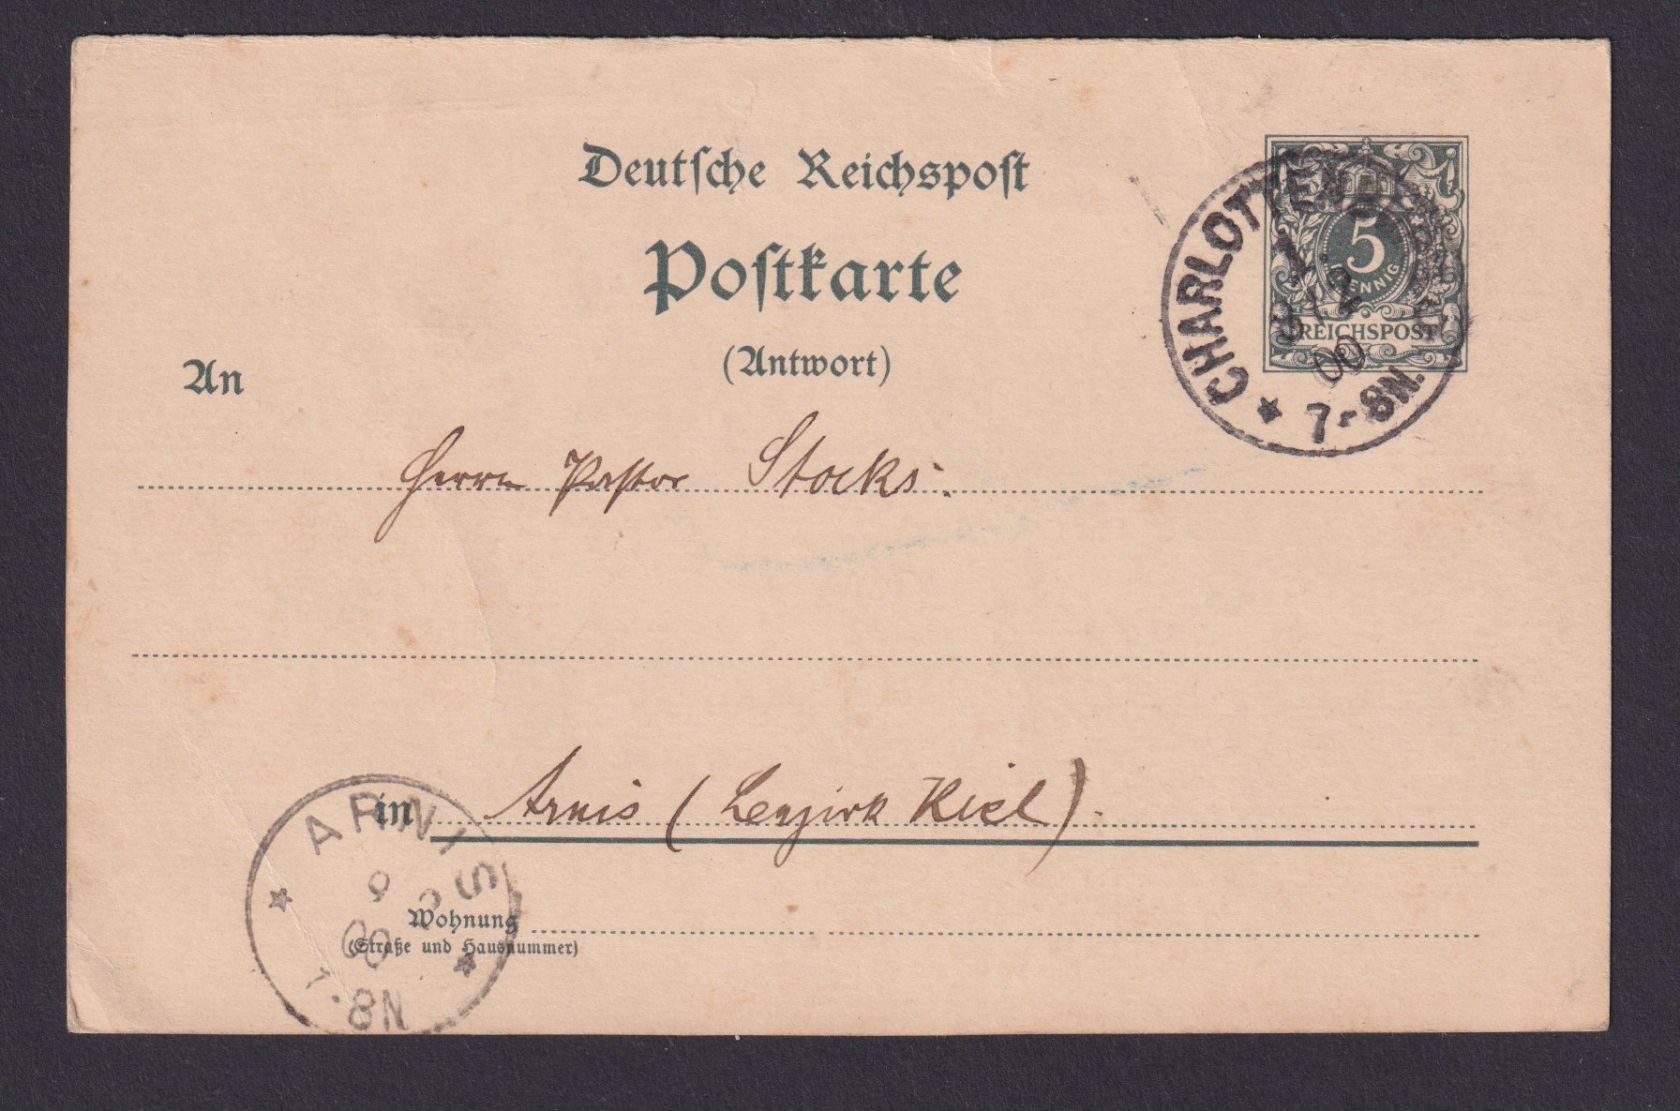 Deutsche Reichspost
Postkarte
(Antwort)
5
PFENNIG
REICHSPOST
CHARLOTTEN
8/2
00
7-8N.
An
Herrn Pastor Stocks.
in Arnis (Bezirk Kiel).
Wohnung
(Straße und Hausnummer)
ARNIS
9
00
7.8N